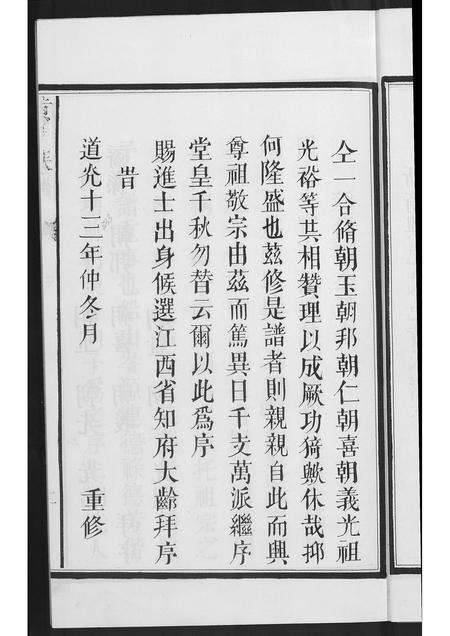 仝一合脩朝玉朝邦朝仁朝喜朝義光祖
光裕等共相贊理以成厥功猗歟休哉抑
何隆盛也茲修是譜者則親親自此而興
尊祖敬宗由茲而篤異日千支萬派繼序
堂皇千秋勿替云爾以此爲序
賜進士出身候選江西省知府大齡拜序
昔
道光十三年仲冬月 重修